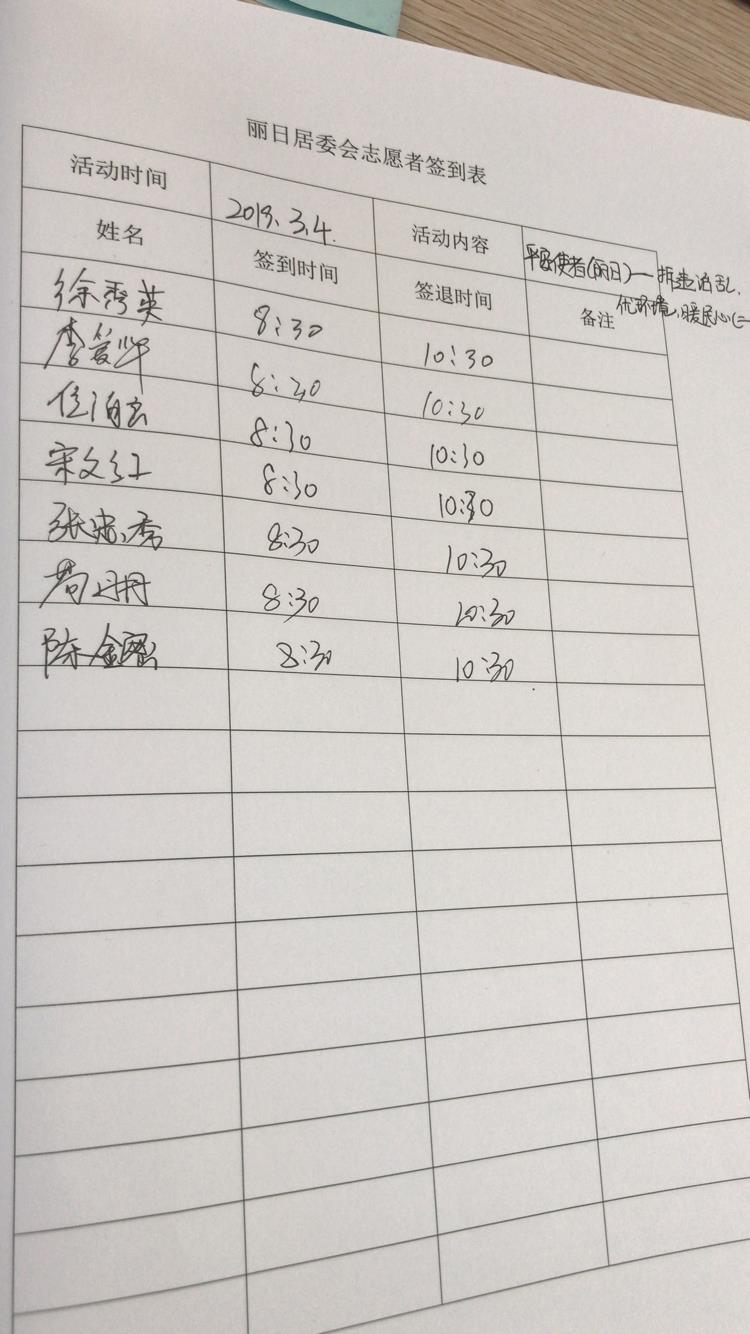 丽日居委会志愿者签到表
活动时间 2019.3.4. 活动内容 平安使者(丽日)一拆违治乱.
优环境,暖民心(二
姓名 签到时间 签退时间 备注
徐秀英 8:30 10:30
李爱华 8:30 10:30
8:30 10:30
宋文红 8:30 10:30
张忠秀 8:30 10:30
8:30 10:30
陈金 8:30 10:30